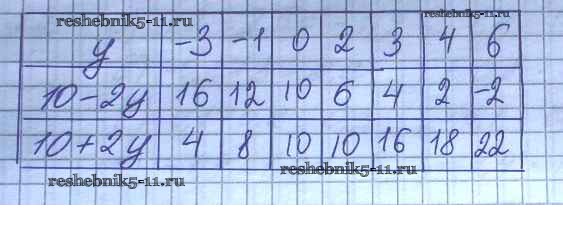 reshebnik5-11.ru reshebnik5-11.ru
y -3 -1 0 2 3 4 6
10-2y 16 12 10 6 4 2 -2
10+2y 4 8 10 10 16 18 22
reshebnik5-11.ru reshebnik5-11.ru